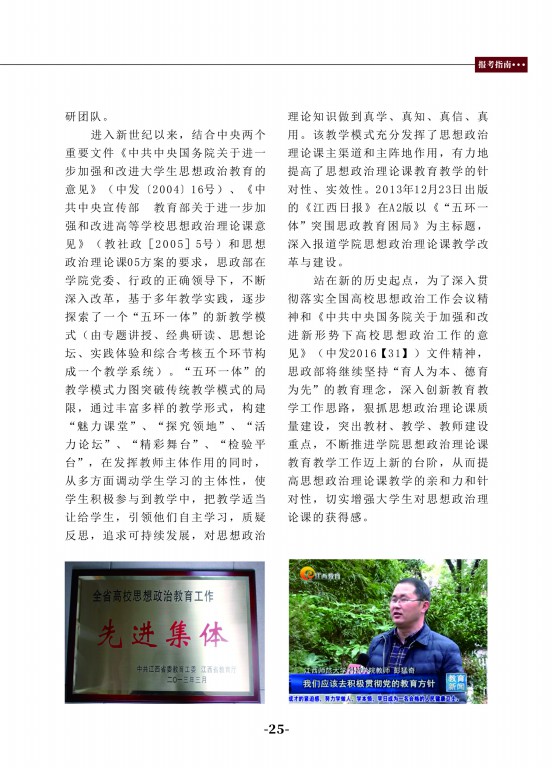 报考指南•••
研团队。
进入新世纪以来，结合中央两个
重要文件《中共中央国务院关于进一
步加强和改进大学生思想政治教育的
意见》（中发〔2004〕16号）、《中
共中央宣传部　教育部关于进一步加
强和改进高等学校思想政治理论课意
见》（教社政［2005］5号）和思想
政治理论课05方案的要求，思政部在
学院党委、行政的正确领导下，不断
深入改革，基于多年教学实践，逐步
探索了一个“五环一体”的新教学模
式（由专题讲授、经典研读、思想论
坛、实践体验和综合考核五个环节构
成一个教学系统）。“五环一体”的
教学模式力图突破传统教学模式的局
限，通过丰富多样的教学形式，构建
“魅力课堂”、“探究领地”、“活
力论坛”、“精彩舞台”、“检验平
台”，在发挥教师主体作用的同时，
从多方面调动学生学习的主体性，使
学生积极参与到教学中，把教学适当
让给学生，引领他们自主学习，质疑
反思，追求可持续发展，对思想政治
理论知识做到真学、真知、真信、真
用。该教学模式充分发挥了思想政治
理论课主渠道和主阵地作用，有力地
提高了思想政治理论课教育教学的针
对性、实效性。2013年12月23日出版
的《江西日报》在A2版以《“五环一
体”突围思政教育困局》为主标题，
深入报道学院思想政治理论课教学改
革与建设。
站在新的历史起点，为了深入贯
彻落实全国高校思想政治工作会议精
神和《中共中央国务院关于加强和改
进新形势下高校思想政治工作的意
见》（中发2016【31】）文件精神，
思政部将继续坚持“育人为本、德育
为先”的教育理念，深入创新教育教
学工作思路，狠抓思想政治理论课质
量建设，突出教材、教学、教师建设
重点，不断推进学院思想政治理论课
教育教学工作迈上新的台阶，从而提
高思想政治理论课教学的亲和力和针
对性，切实增强大学生对思想政治理
论课的获得感。
全省高校思想政治教育工作
先进集体
中共江西省委教育工委 江西省教育厅
二〇一三年三月
江西教育
江西师范大学科技学院教师 彭猛奇
我们应该去积极贯彻党的教育方针
教育
新闻
成才的紧迫感，努力学做人、学本领，早日成为一名合格的人民健康卫士。
-25-